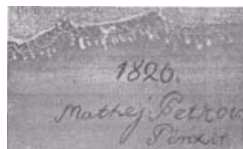 1826.
Mathej Petrov
Pinxit